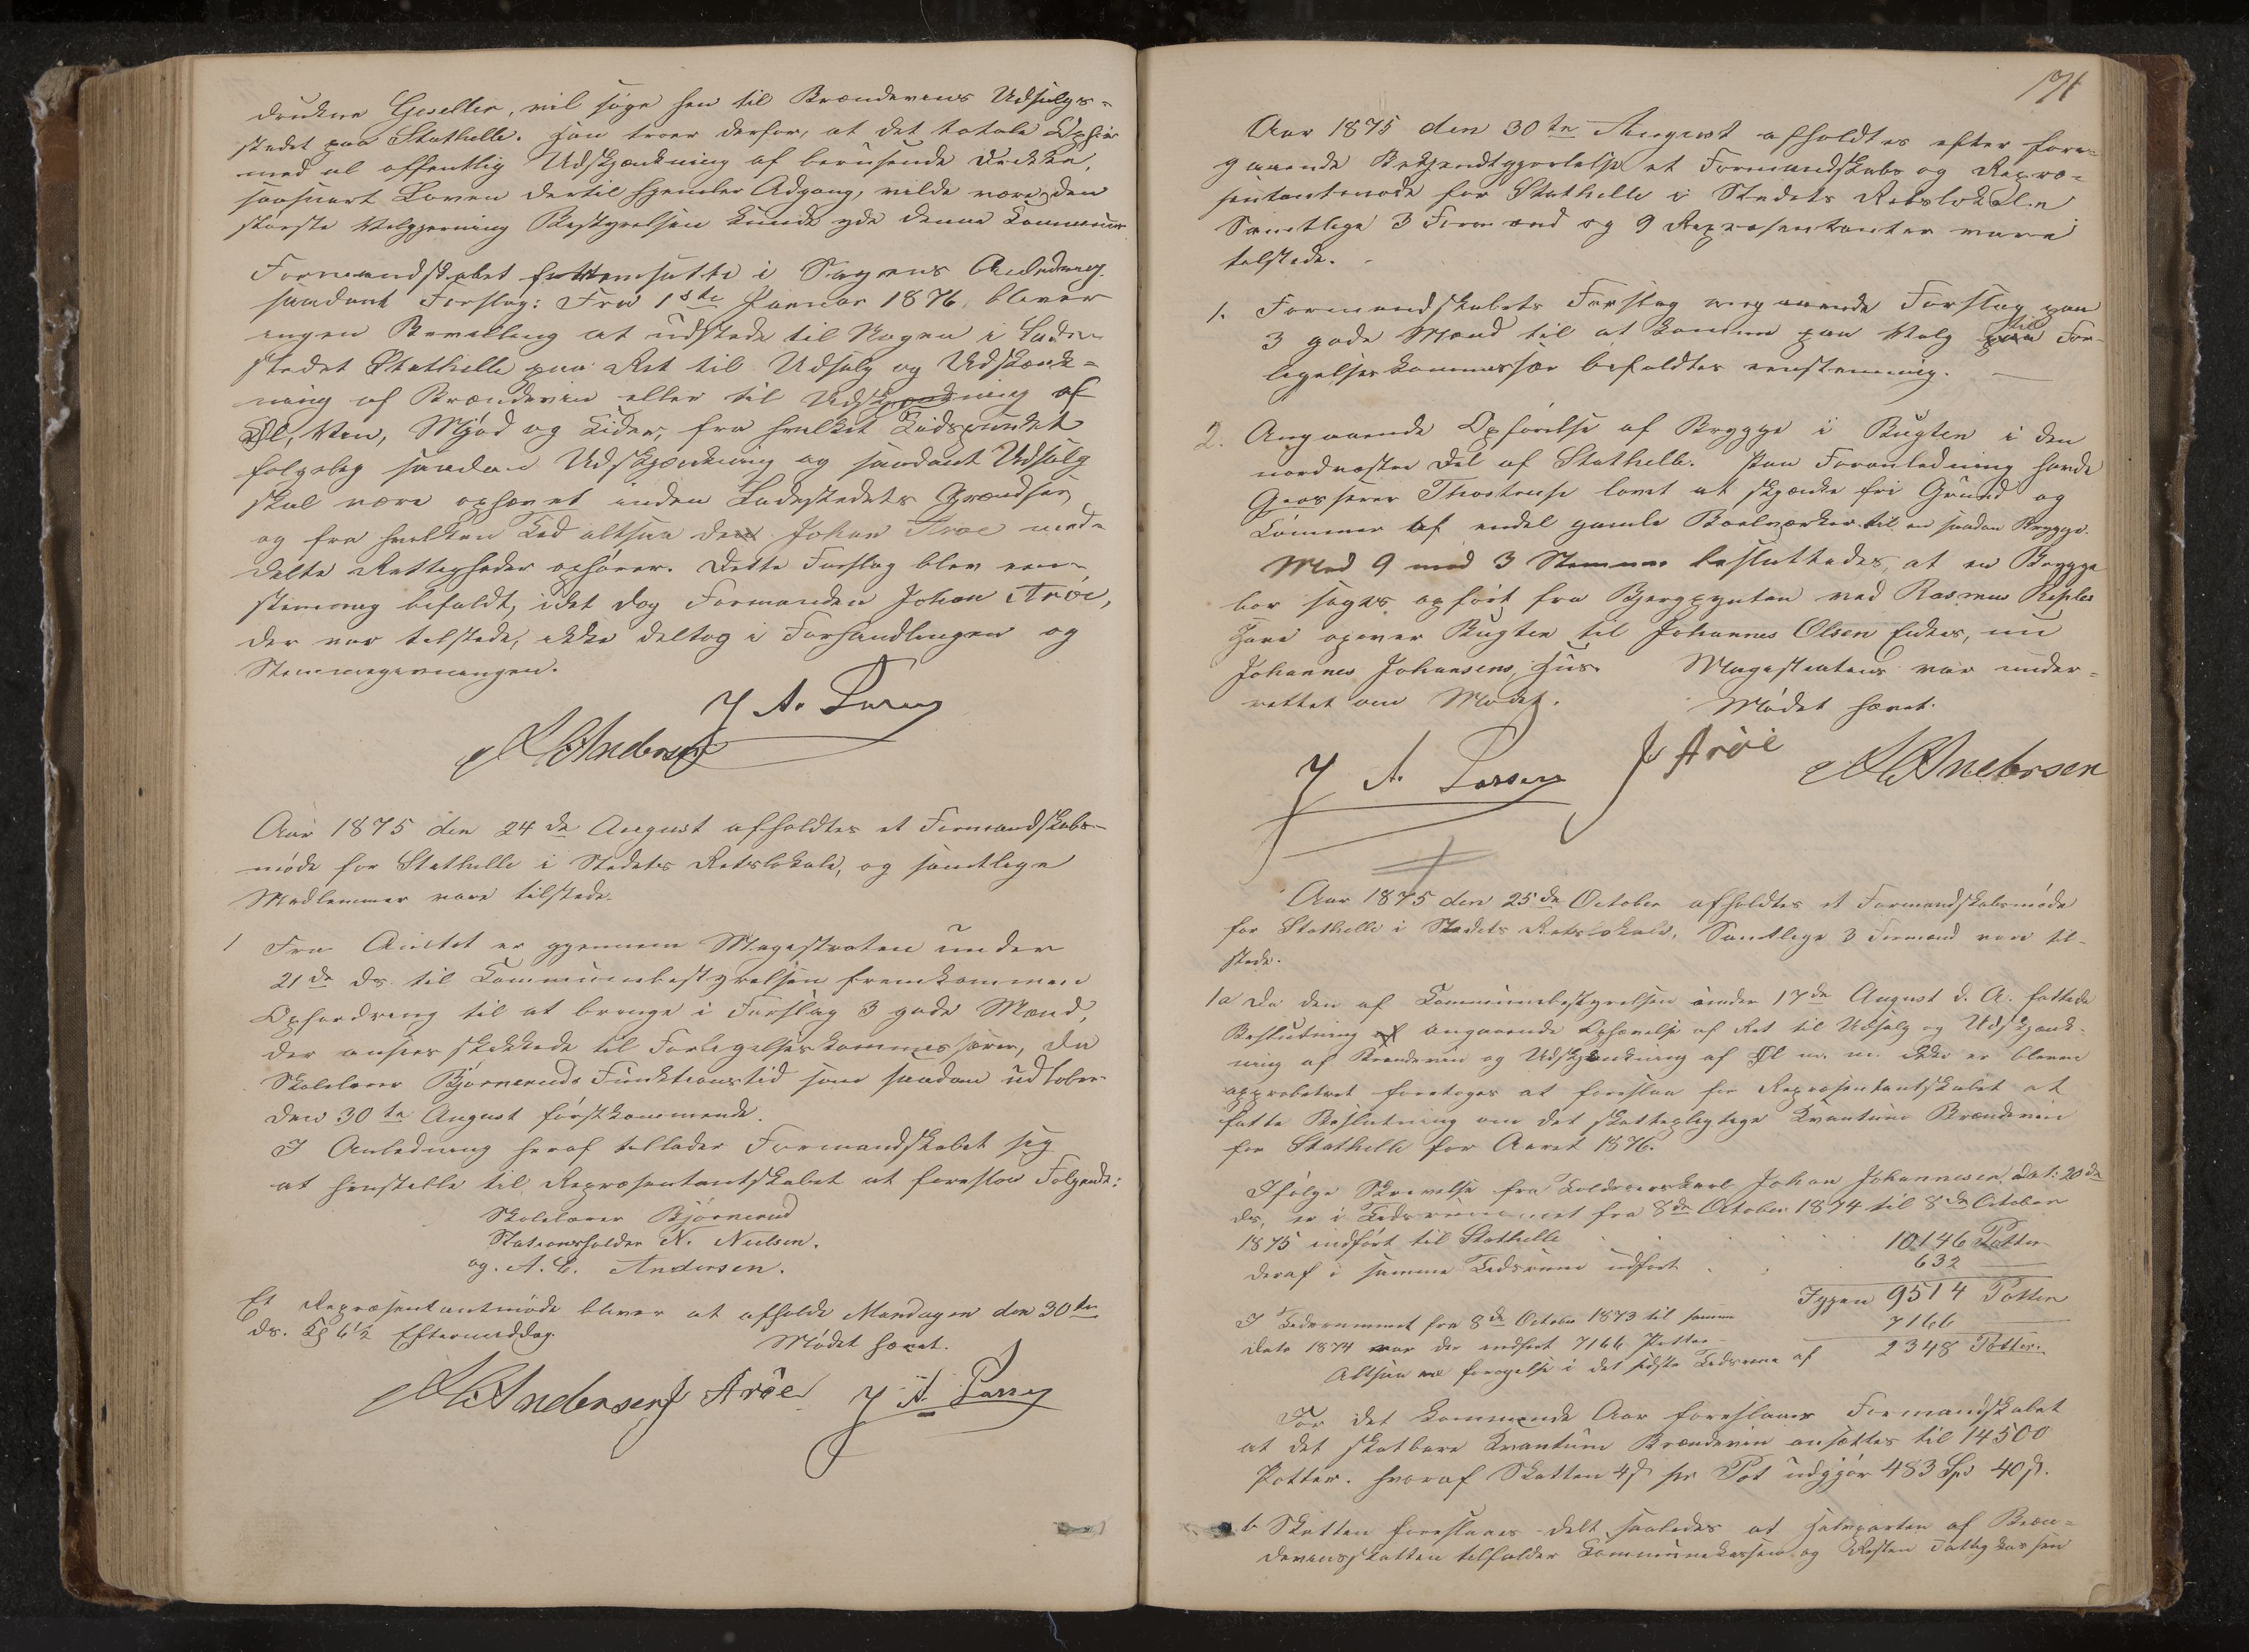 drukne Geseller, vil søge hen til Brændevins Udsalgs-
stedet paa Stathelle. Han troer derfor, at det totale Ophør
med al offentlig Udskjænkning af berusende Drikke,
saasnart Loven dertil hjemler Adgang, vilde være den
største Velgjerning Bestyrelsen kunde yde denne Kommune.
Formandskabet fattem satte i Sagens Anledning
saadant Forslag: Fra 1ste Januar 1876 bliver
ingen Bevilling at udstede til Nogen i Lade-
stedet Stathelle paa Ret til Udsalg og Udskænk-
ning af Brændevin eller til Udskjænkning af
Øl, Vin, Mjød og Cider, fra hvilket Tidspunkt
følgelig saadan Udskjænkning og saadant Udsalg
skal være ophævet inden Ladestedets Grændser
og fra hvilken Tid altsaa den Johan Arøe med-
delte Rettigheder ophører. Dette Forslag blev een-
stemmig bifaldt, idet dog Formanden Johan Arøe,
der var tilstede, ikke deltog i Forhandlingen og
Stemmegivningen.
J A. Larsen
A C Andersen
Aar 1875 den 24de August afholdtes et Formandskabs-
møde for Stathelle i Stedets Retslokale, og samtlige
Medlemmer vare tilstede.
1 Fra Amtet er gjennem Magistraten under
21de ds. til Kommunebestyrelsen fremkommen
Opfordring til at bringe i Forslag 3 gode Mænd,
der ansees skikkede til Forligelseskommissærer, da
Skolelærer Bjørneruds Funktionstid som saadan udløber
den 30te August førstkommende.
I Anledning heraf tillader Formandskabet sig
at henstille til Repræsentantskabet at foreslaa Følgende:
Skolelærer Bjørnerud
Stationsholder N. Nielsen.
og A. C. Andersen.
Et Repræsentantmøde bliver at afholde Mandagen den 30te
ds. Kl 6½ Eftermiddag.
Mødet hævet.
A C Andersen J Arøe J A. Larsen
171
Aar 1875 den 30te August afholdtes efter fore-
gaaende Bekjendtgjørelse et Formandskabs og Repræ-
sentantmøde for Stathelle i Stedets Retslokale.
Samtlige 3 Formænd og 9 Repræsentanter vare
tilstede.
1. Formandskabets Forslag angaaende Forslag paa
3 gode Mænd til at komme paa Valg paa til For-
ligelseskommissær bifaldtes eenstemmig.
2. Angaaende Opførelse af Brygge i Bugten i den
nordvestre Del af Stathelle. Paa Foranledning havde
Grosserer Thostrup lovet at skjænke fri Grund og
Tømmer af endel gamle Boelværker til en saadan Brygge.
Med 9 mod 3 Stemmer besluttedes, at en Brygge
bør søges opført fra Bjergpynten ved Rasmus
Have opover Bugten til Johannes Olsen Enkes, nu
Johannes Johansens, Hus. Magistraten var under-
rettet om Mødet.
Mødet hævet.
J A. Larsen J Arøe A C Andersen
Aar 1875 den 25de October afholdtes et Formandskabsmøde
for Stathelle i Stedets Retslokale. Samtlige 3 Formænd vare til-
stede.
1a Da den af Kommunebestyrelsen under 17de August d. A. fattede
Beslutning af angaaende Ophævelse af Ret til Udsalg og Udskjænk-
ning af Brændevin og Udskjænkning af Øl m. m. ikke er bleven
approberet foretoges at foreslaa for Repræsentantskabet at
fatte Beslutning om det skattepligtige Kvantum Brændevin
for Stathelle for Aaret 1876.
Ifølge Skrivelse fra Toldoverskarl Johan Johannesen, dat: 20de
ds, er i Tidsrummet fra 8de October 1874 til 8de October
1875 indført til Stathelle 10146 Potter
deraf i samme Tidsrum udført 632
Igjen 9514 Potter
I Tidsrummet fra 8de October 1873 til samme
Dato 1874 var der indført 7166 Potter 7166
Altsaa en forøgelse i det sidste Tidsrum af 2348 Potter.
For det kommende Aar foreslaaer Formandskabet
at det skatbare Kvantum Brændevin ansættes til 14500
Potter. hvoraf Skatten 4ß pr Pot udgjør 483 Spd 40ß.
b Skatten foreslaaes delt saaledes at Halvparten af Bræn-
devinsskatten tilfalder Kommunekassen og Resten Fattigkassen